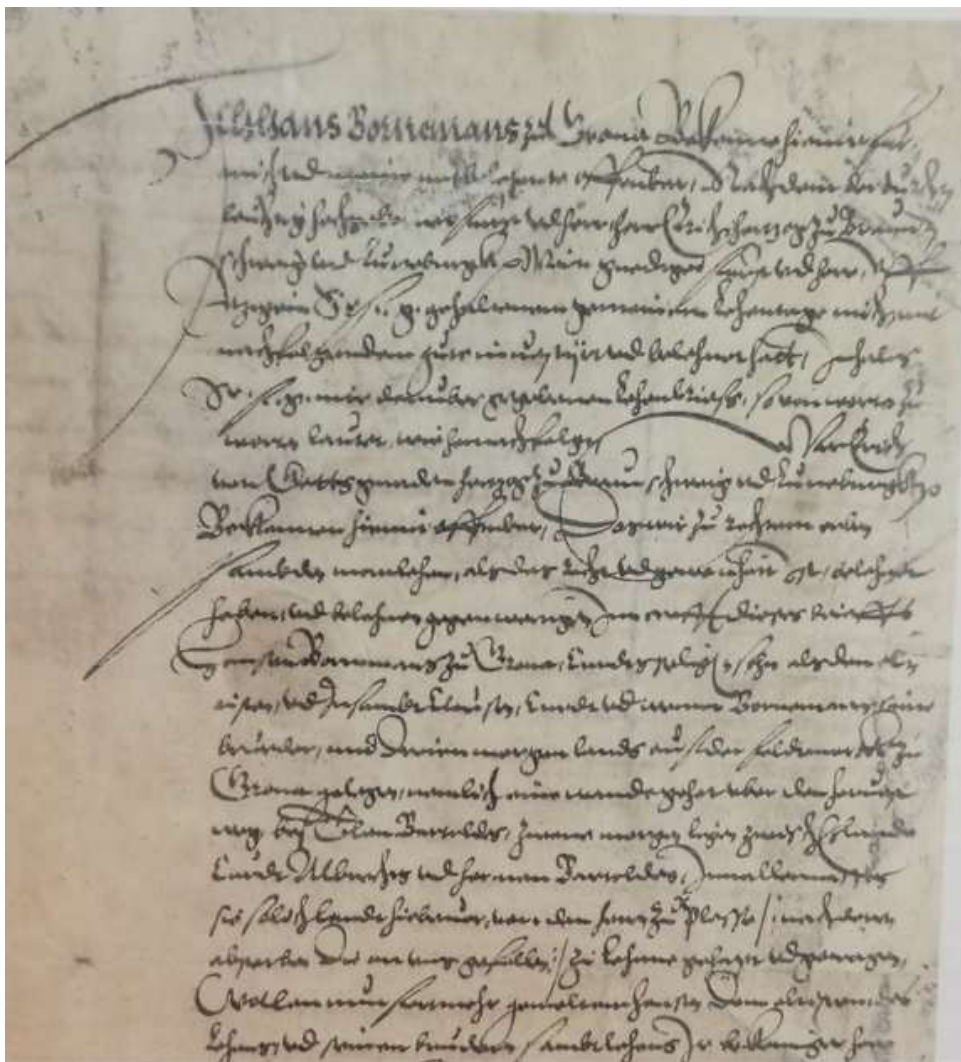 Ich Hans Bornemans zu Grona Bekenne hiemit fur
mich und meine mitbelehnte offenbar, Nachdem der durch
leuchtig hochgeborne furst und herr her Erich hertzog zu Braun
schweig und Luneburgk Mein gnediger furst und her, Uff
itzigem Sr. f. g. gehaltenem gemeinem Lehentage mich mit
nachfolgendem gute und belehnet hatt, Inhalts
Sr. f. g. mir daruber gegebenen Lehenbrieffs, so von worte zu
worte lautet, wie hernachfolget, Von Erich
von Gotts gnaden hertzog zu Braunschweig und Luneburgk
Bekennen hiemit offenbar, Das wir zu rechtem erben
sambden manlehen, als des recht und gewonheit ist, belehnet
haben, und belehnen gegenwertigen in crafft dieses brieffs
Hansen Bornemans zu Grona, Cordes seligen sohn als den el
tisten, und Insambt Clausen, Cordt und Bornemans seine
brueder, mit dreien morgen lands auf der feldmarck zu
Grona gelegen, nemlich eine wende gehet uber den
weg bey Clan Bartoldes, zweene morgen ligen zwischen
Cordt Albrechts und Herman Bartoldes, In allermassen
sie solch landt hiebevor, von den hern zu Plesse /: nach deren
absterben die an uns gefallen :/ zu lehene gehapt und getragen,
Wollen nun furmehr gemelten Hansen Dem eltisten des
Lehens und seinen bruedern sambtlehens Ir bekenniger herr